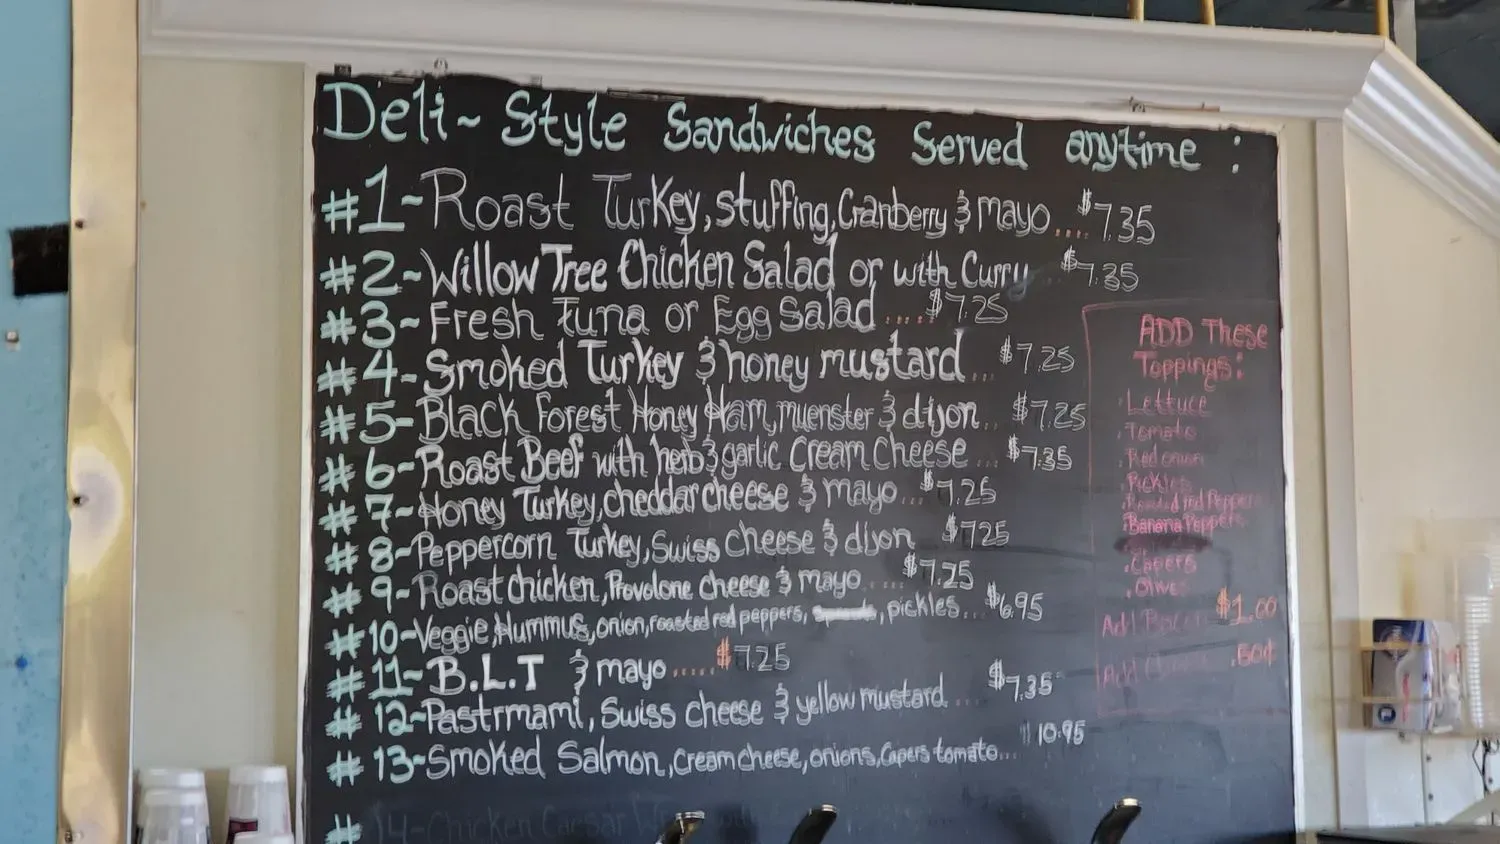 Deli~ Style Sandwiches Served anytime :
#1~Roast Turkey, stuffing, Cranberry & mayo.... $7.35
#2-Willow Tree Chicken Salad or with Curry $7.35
#3~Fresh tuna or Egg Salad ..... $7.25
#4-Smoked Turkey & honey mustard... $7.25
#5-Black Forest Honey Ham, muenster & dijon.. $7.25
#6-Roast Beef with herb & garlic Cream Cheese ... $7.35
#7-Honey Turkey, cheddar cheese & mayo... $7.25
#8-Peppercorn Turkey, Swiss cheese & dijon $7.25
#9-Roast chicken, Provolone cheese & mayo.... $7.25
#10-Veggie, Hummus, onion, roasted red peppers, , pickles... $6.95
#11-B.L.T & mayo ..... $7.25
#12-Pastrmami, Swiss cheese & yellow mustard ... $7.35
#13-Smoked Salmon, cream cheese, onions, Capers tomato... 10.95
#14-Chicken Caesar
ADD These
Toppings:
.Lettuce
.Tomato
.Red onion
.Pickles
.Roasted red Peppers
.Banana Peppers
.Capers
.Olives
Add Bacon $1.00
Add Cheese .50¢